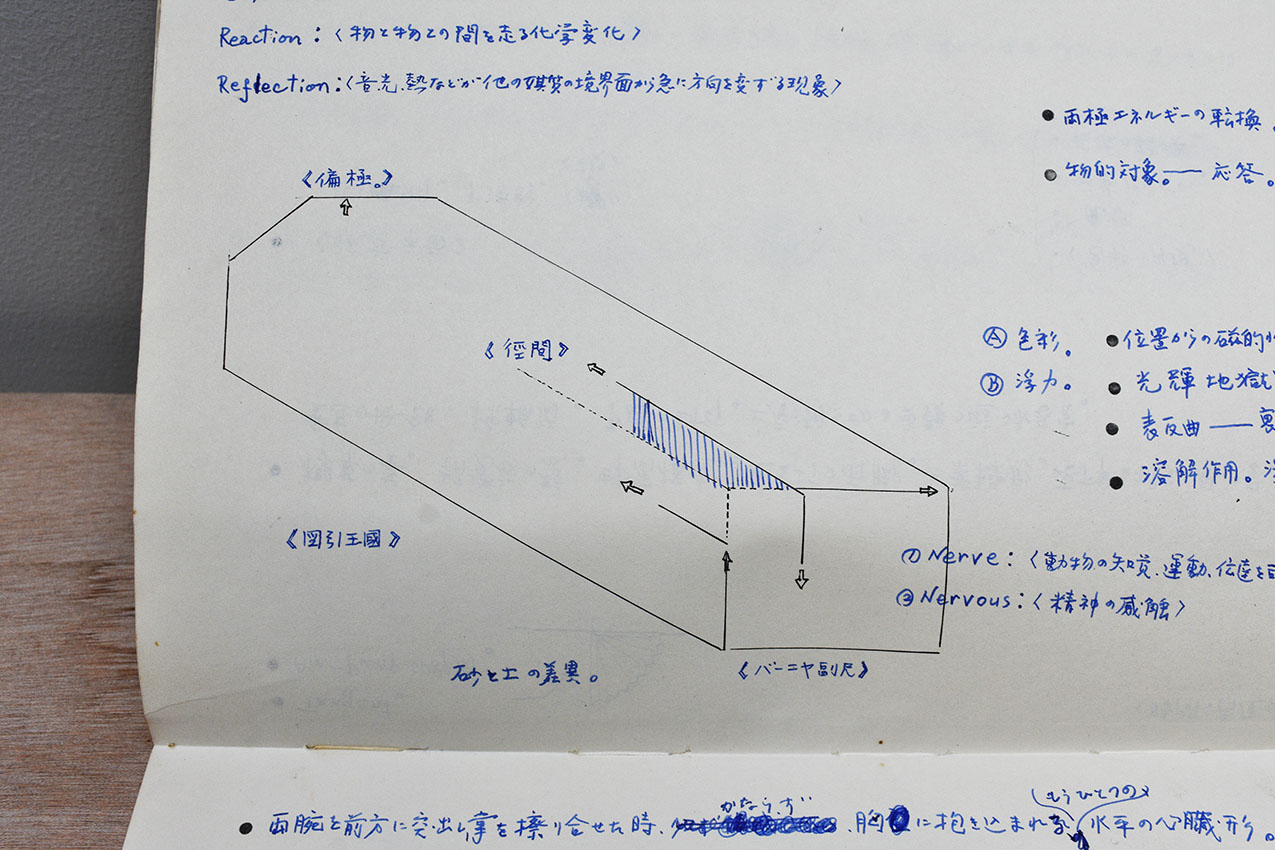 Reaction:〈物と物との間を走る化学変化〉
Reflection:〈音、光、熱などが他の媒質の境界面から急に方向を変ずる現象〉
● 両極エネルギーの転換。
● 物的対象。── 応答。
《偏極。》
Ⓐ 色彩。
● 位置からの磁的
《徑間》
Ⓑ 浮力。
● 光輝地獄
● 表反曲 ──
● 溶解作用。
《図引王國》
① Nerve:〈動物の知覚、運動、伝達を
② Nervous:〈精神の感触〉
砂と土の差異。
《バーニヤ副尺》
かならず
もうひとつの
● 両腕を前方に突出し掌を擦り合せた時、、胸に抱き込まれる水平の心臓形。